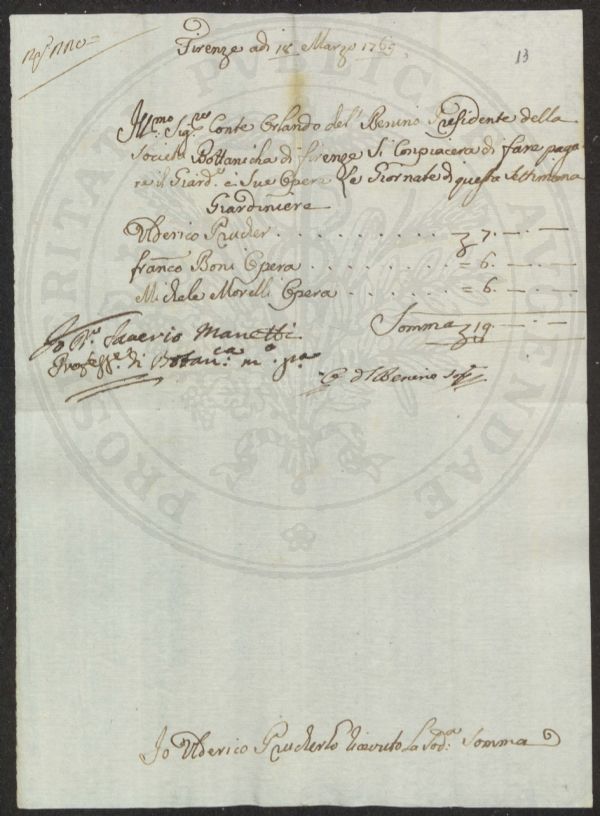 Firenze adi 18 Marzo 1769
13
Ill.mo Sig.re Conte Orlando del Benino Presidente della
Società Bottanicha di firenze Si Conpiacera di fare paga
re il Giard.e e Sue Opere Le Giornate di questa Settimana
Giardiniere
Ulderico Prucher . . . . . . . . . . 7. — . —
franco Boni Opera . . . . . . . . = 6. — . —
Michele Morelli Opera . . . . . . = 6. — . —
Somma 19. — . —
Io D.r Saverio Manetti
Profess.e di Botan.ca m.o p.a
C. d'l Benino
Io Ulderico Prucher ho ricevuto la Sod.a Somma
PROSPERITATI PVBLICAE AVGENDAE